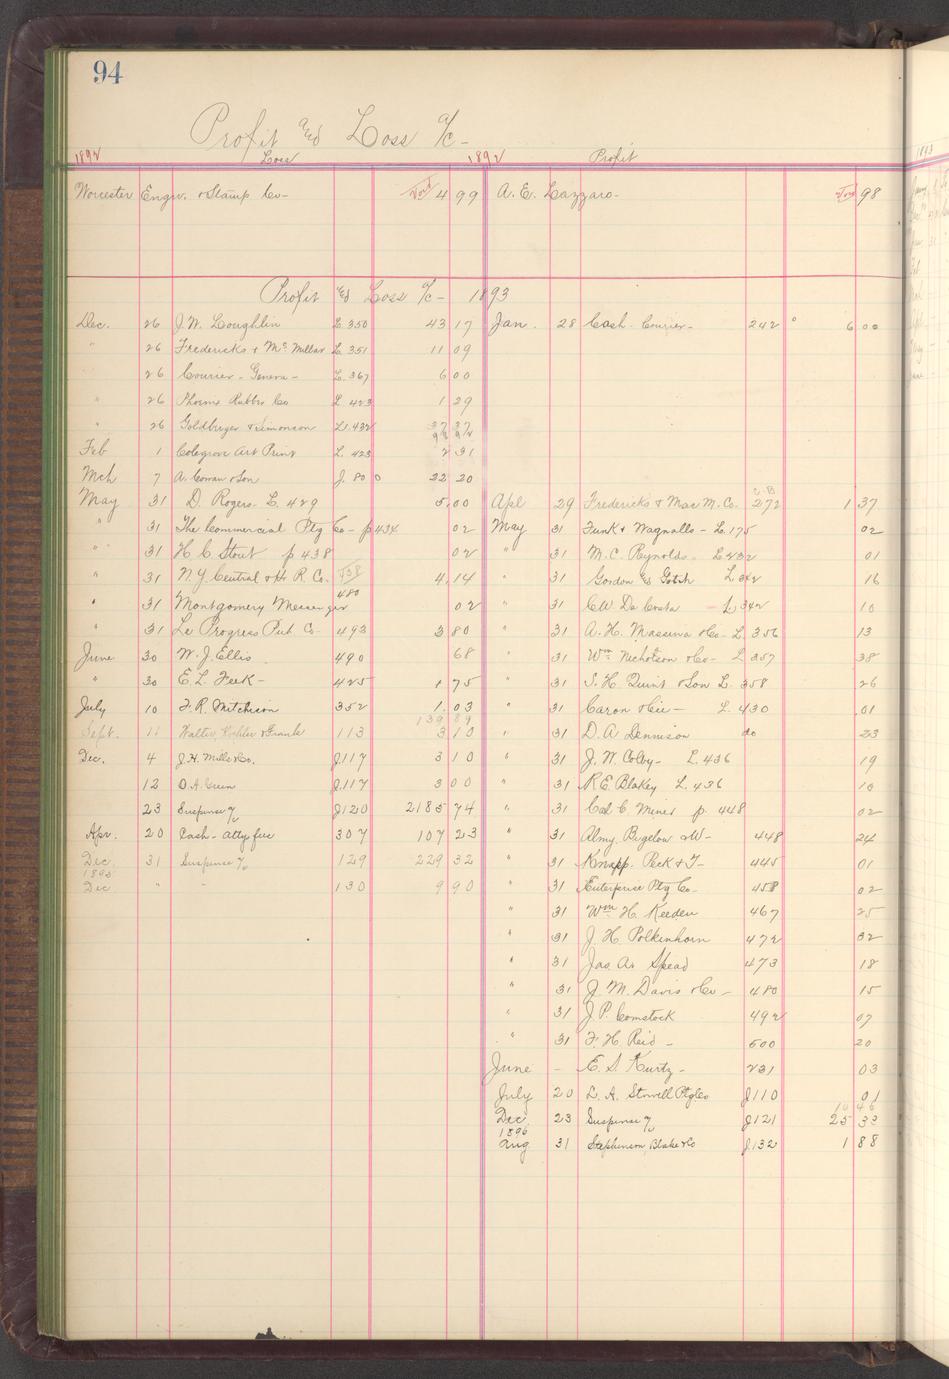 94
Profit and Loss a/c -
1892 Loss 1892 Profit
Worcester Engr. & Stamp Co - 4 99 A. E. Lazzaro - 98
Profit and Loss a/c - 1893
Dec. 26 J. W. Loughlin L. 350 43 17 Jan. 28 Cash Courier - 242 6 00
" 26 Fredericks & Mc Millar L. 351 11 09
26 Courier - Geneva - L. 367 6 00
" 26 Phoenix Rubber Co L 423 1 29
" 26 Goldberger & Simonson L. 432 37 37
Feb 1 Colegrove Art Print L. 423 2 31
Mch 7 A. Cowan & Son J. 80 22 20
May 31 D. Rogers L. 429 5.00 Apl 29 Fredericks & Mac M. Co. C.B 272 1 37
" 31 The Commercial Ptg Co - p 434 02 May 31 Funk & Wagnalls - L. 175 02
" 31 H. C Stout p 438 02 " 31 M. C. Reynolds - L 432 01
" 31 N. Y. Central & H R. Co. 438 4.14 " 31 Gordon & Gotch L 342 16
" 31 Montgomery Messenger 480 02 " 31 C. W. Da Costa - L. 342 10
" 31 Le Progress Pub Co - 493 3 80 " 31 A. H. Massina & Co - L. 356 13
June 30 W. J. Ellis 490 68 " 31 Wm Nicholson & Co - L 357 38
" 30 E. L. Feek - 425 1 75 " 31 S. H. Quint & Son L. 358 26
July 10 F. R. Mitchison 352 1.03 " 31 Caron & Cie - L. 430 .01
139 89
Sept. 11 Walter, Kohler & Frank 113 3 10 " 31 D. A Dennison do 23
Dec. 4 J. H. Mills & Co. J117 3 10 " 31 J. W. Colby - L. 436 19
12 O. A. Green J.117 3 00 " 31 R. E. Blakey L. 436 10
23 Suspense a/c J120 2185 74 " 31 Cal C. Miner p. 448 02
Apr. 20 Cash - atty fee 307 107 23 " 31 Almy Bigelow & W - 448 24
Dec. 31 Suspense a/c 129 229 32 " 31 Knapp. Peck & T - 445 01
1895
Dec " " 130 9 90 " 31 Enterprise Ptg Co - 458 02
" 31 Wm. H. Keeden 467 25
" 31 J. H Polkinhorn 472 32
" 31 Jas. A. Spead 473 18
" 31 J. M. Davis & Co - 480 15
" 31 J. P. Comstock 492 07
" 31 F. H. Reid - 500 20
June - E. S. Kurtz - 231 03
July 20 L. A. Stowell Ptg Co J110 01
10 46
Dec 23 Suspense a/c J121 25 33
1896
Aug 31 Stephenson, Blake & Co J.132 1 88